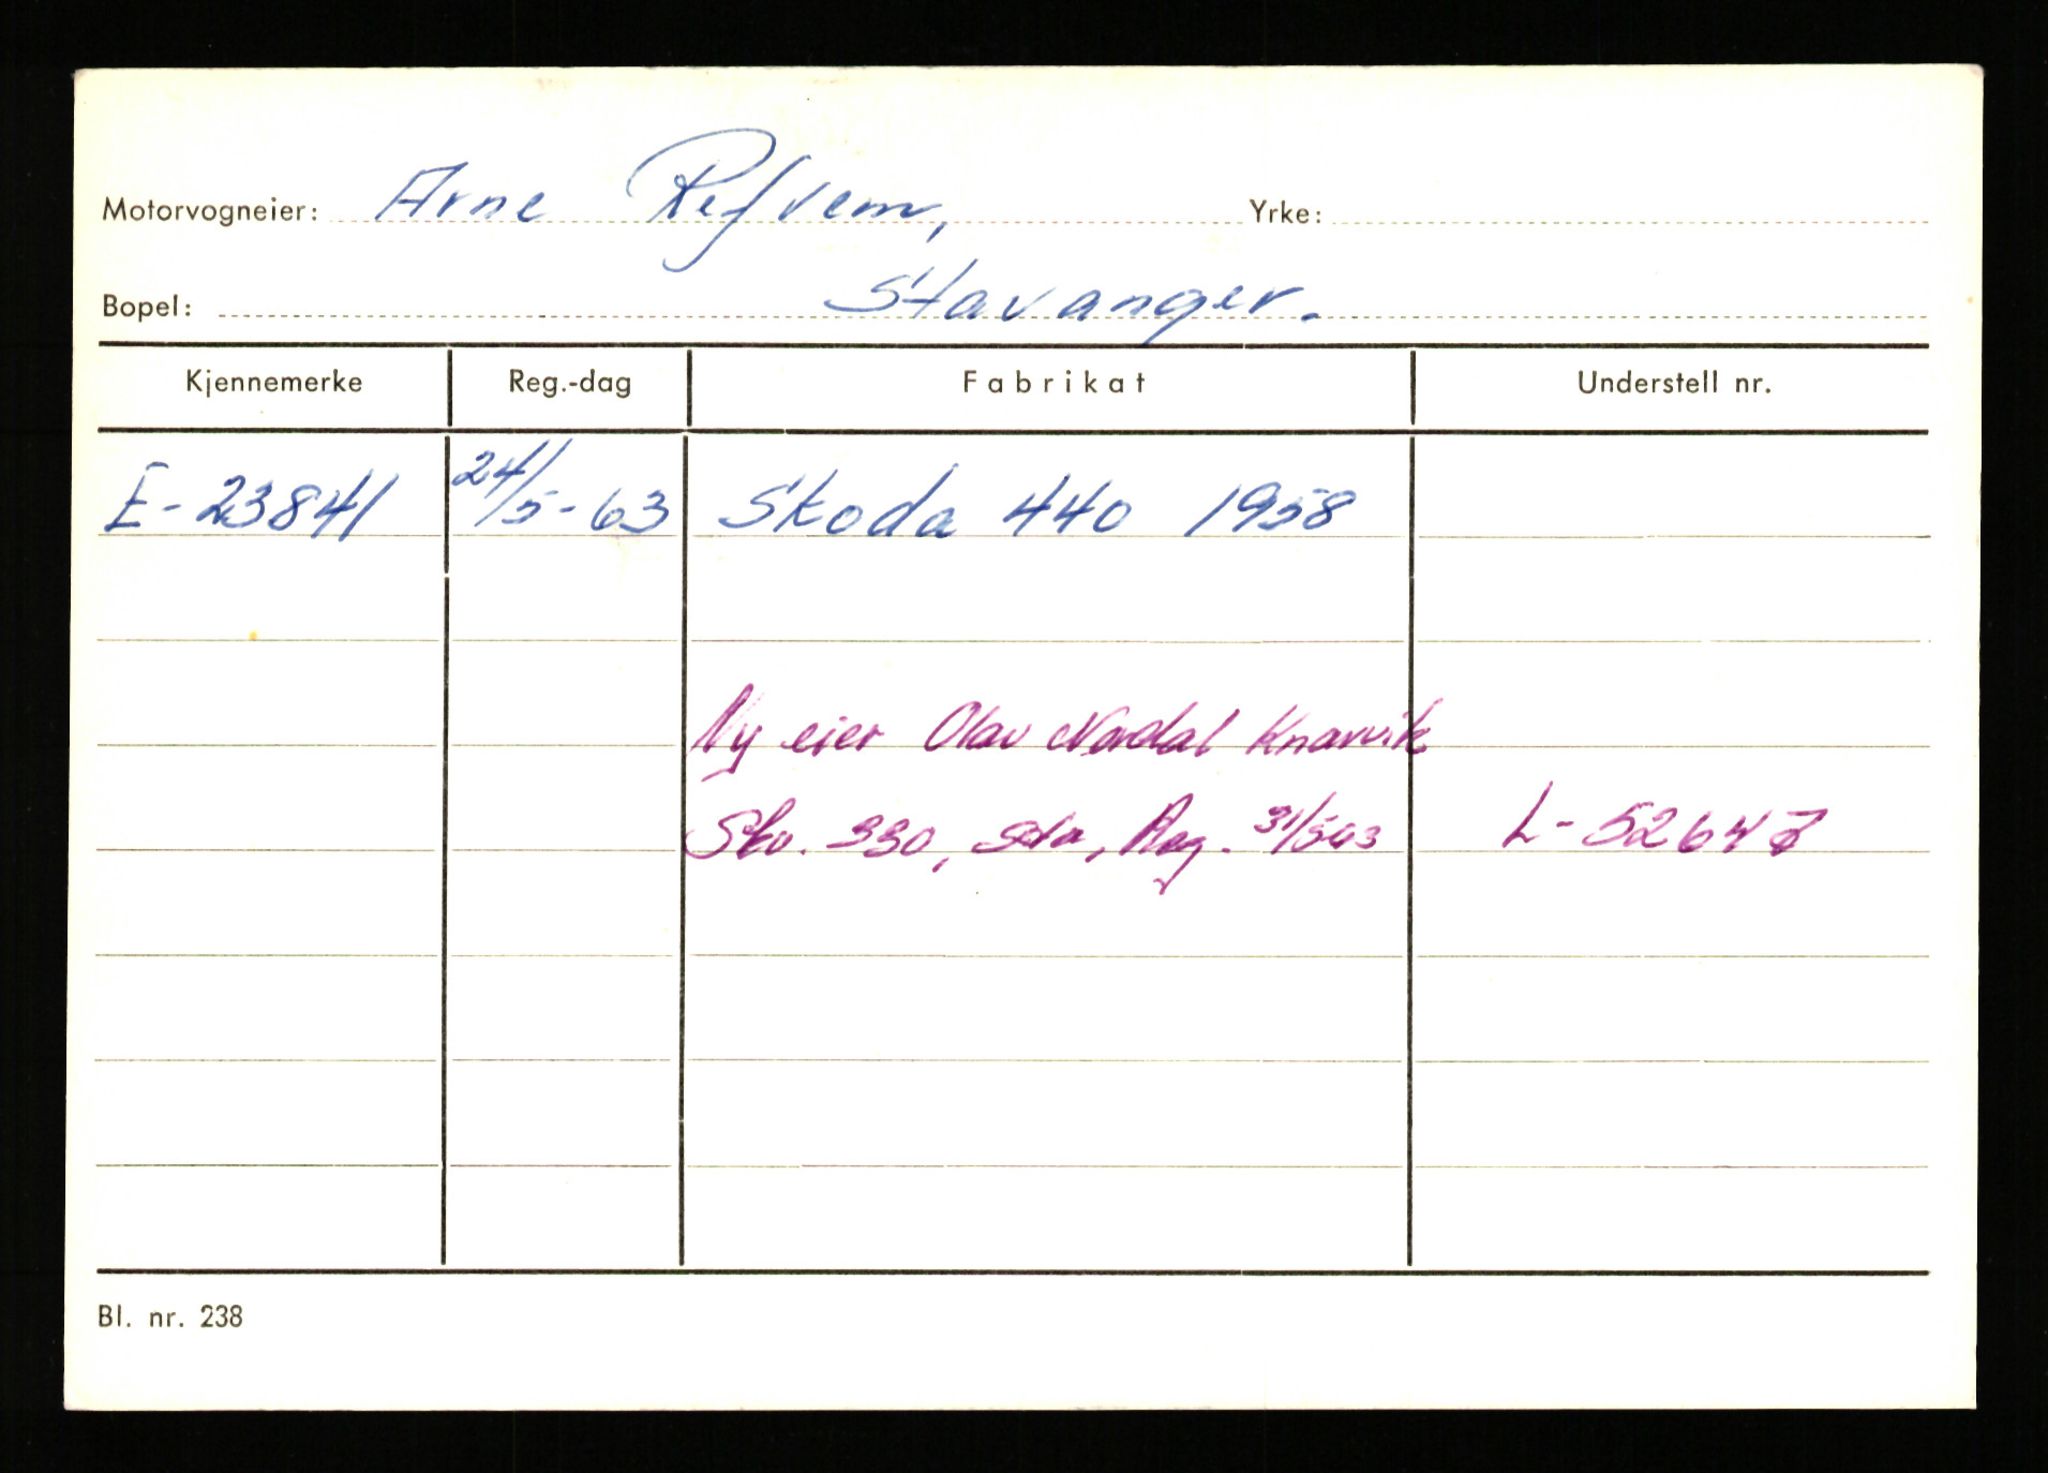 Motorvogneier: Arne Refvem, Yrke:
Bopel: Stavanger.
Kjennemerke Reg.-dag Fabrikat Understell nr.
E-23841 24/5-63 Skoda 440 1958
Ny eier Olav Nordal Knarvik
330, Reg. 31/5-63 L-52647
Bl. nr. 238